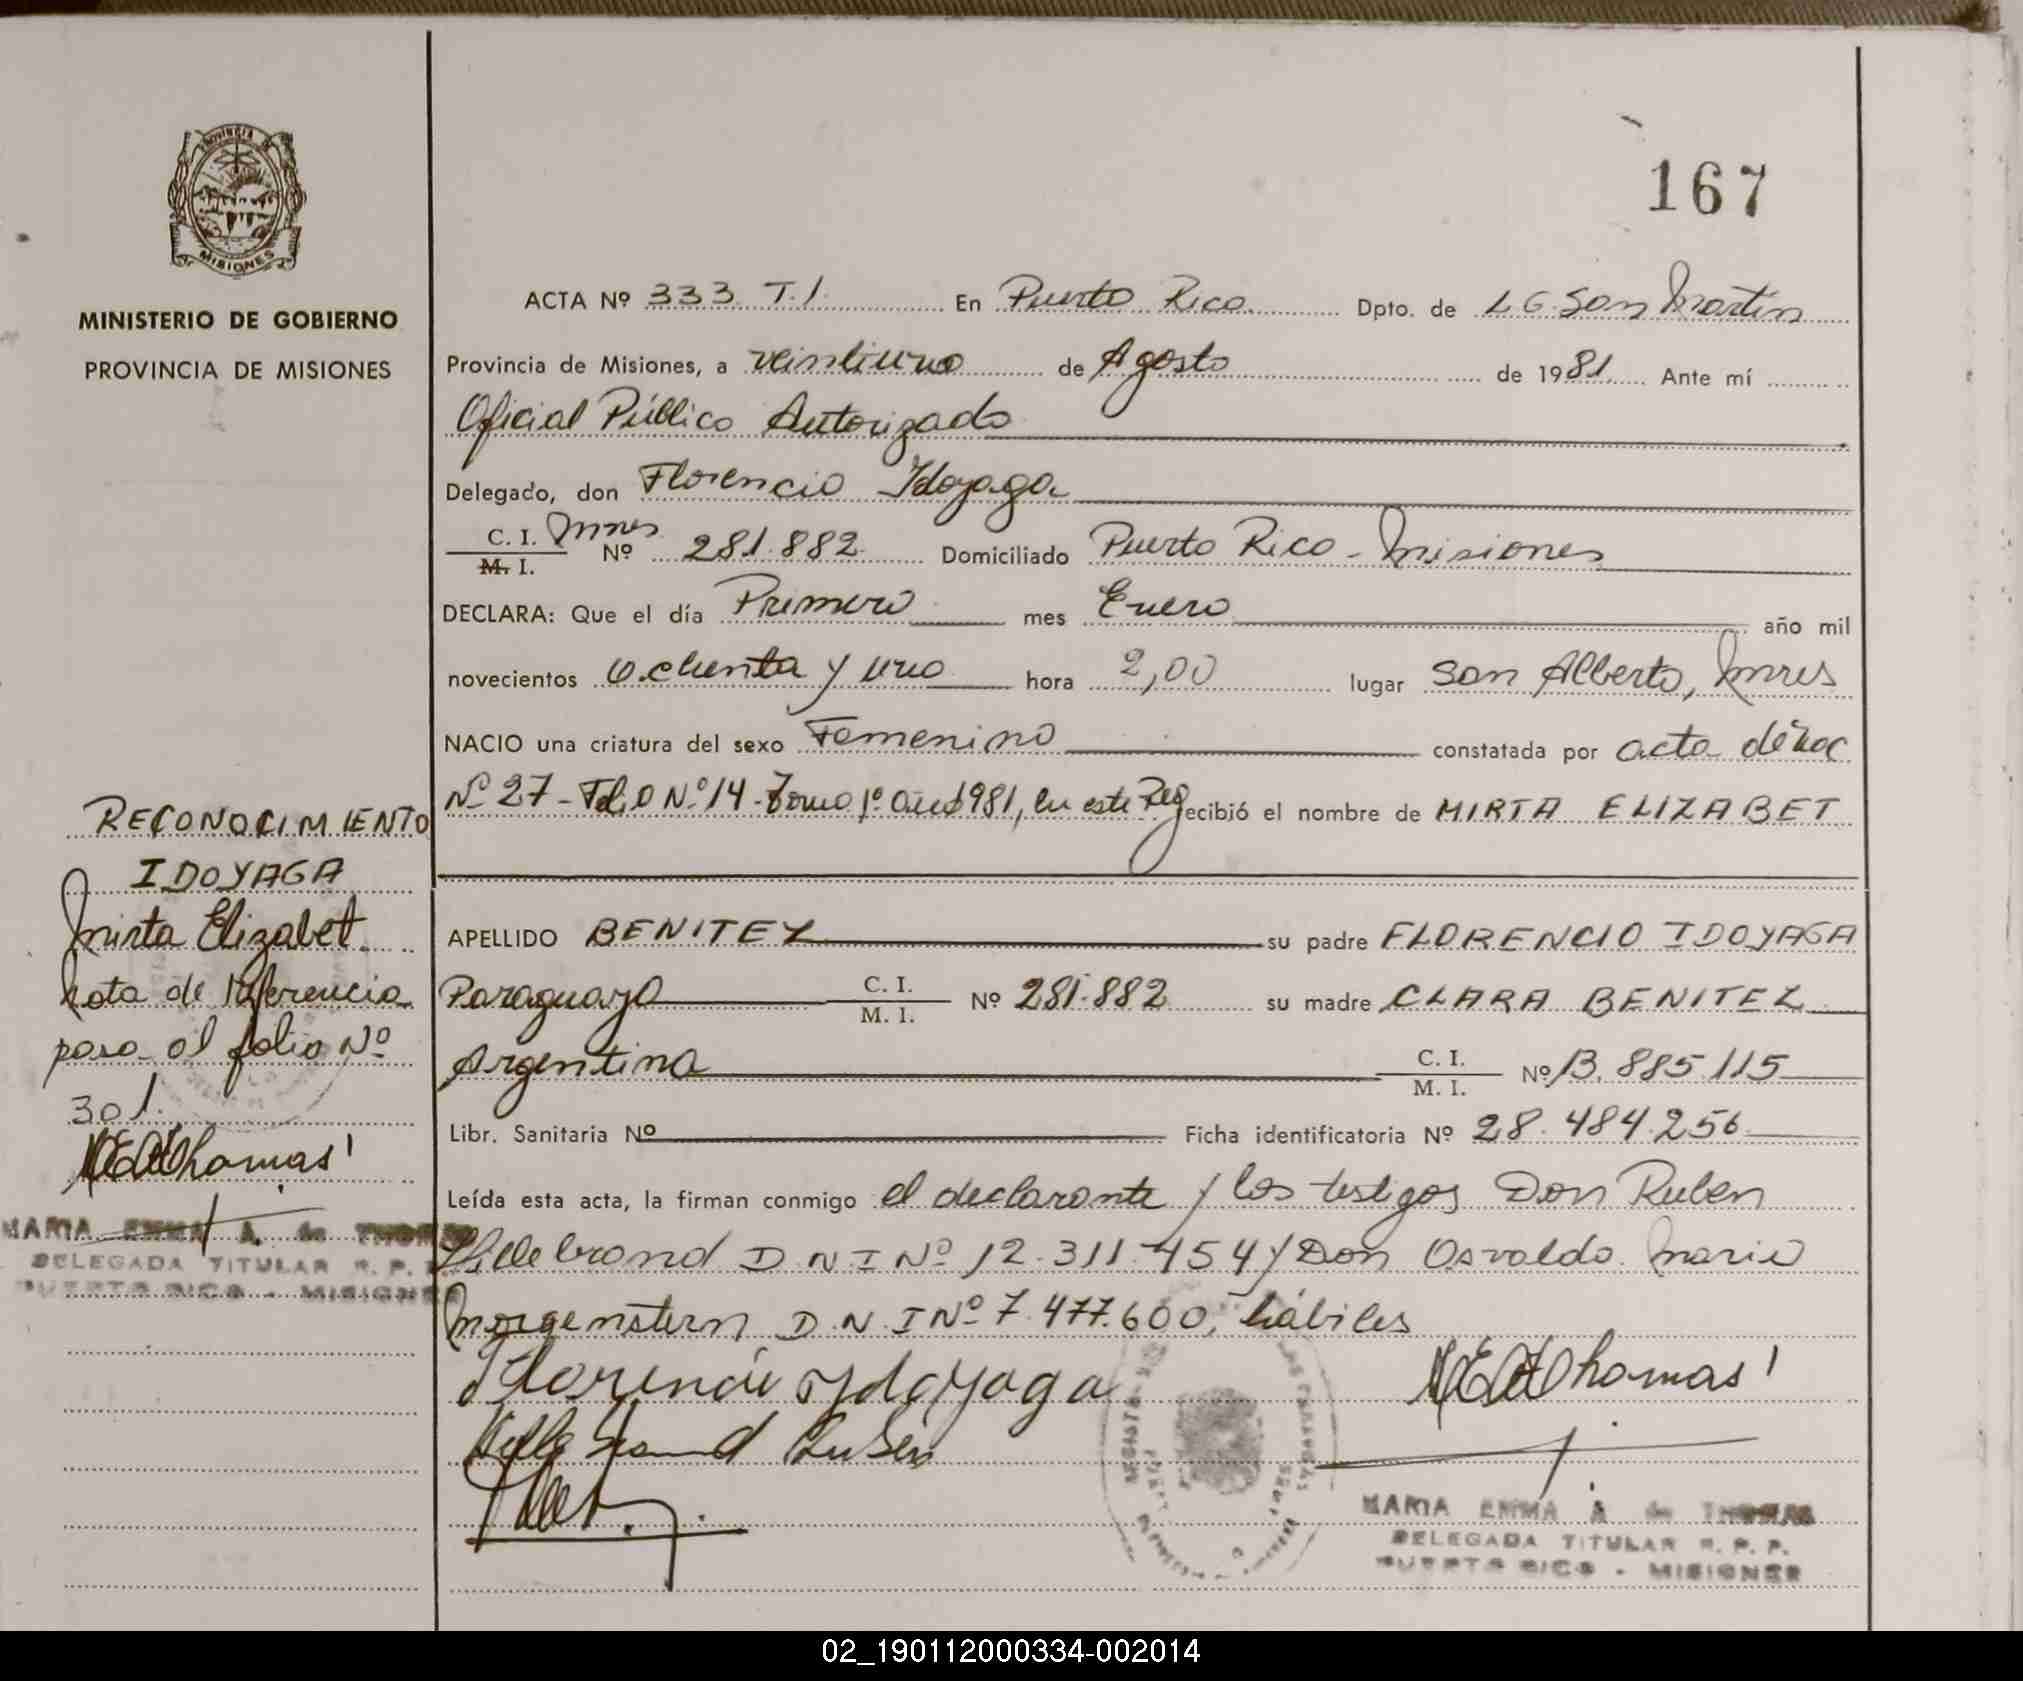 167
PROVINCIA DE
MISIONES
MINISTERIO DE GOBIERNO
PROVINCIA DE MISIONES
ACTA Nº 333 T.1. En Puerto Rico Dpto. de L G. San Martin
Provincia de Misiones, a veintiuno de Agosto de 1981. Ante mí
Oficial Público Autorizado
Delegado, don Florencio Idoyaga
C. I. Mnes
M. I. Nº 281.882 Domiciliado Puerto Rico - Misiones
DECLARA: Que el día Primero mes Enero año mil
novecientos ochenta y uno hora 2,00 lugar San Alberto, Mnes
NACIO una criatura del sexo Femenino constatada por acta de nac
Nº 27 - Folio Nº 14 - Tomo 1º año 1981, en este Reg recibió el nombre de MIRTA ELIZABET
APELLIDO BENITEZ su padre FLORENCIO IDOYAGA
Paraguayo C. I. M. I. Nº 281.882 su madre CLARA BENITEZ
Argentina C. I. M. I. Nº 13.885.115
Libr. Sanitaria Nº Ficha identificatoria Nº 28.484.256
Leída esta acta, la firman conmigo el declarante y los testigos Don Ruben
Hillebrand D N I Nº 12.311.454 y Don Osvaldo Mario
Morgenstern D. N. I Nº 7.477.600, hábiles
Florencio Ydoyaga
Hillebrand Ruben
MEAThomas
MARIA EMMA A. de THOMAS
DELEGADA TITULAR R. P. P.
PUERTO RICO - MISIONES
RECONOCIMIENTO
IDOYAGA
Mirta Elizabet
Nota de Referencia
pasa al folio Nº
301.
MEAThomas
MARIA EMMA A. de THOMAS
DELEGADA TITULAR R. P.
PUERTO RICO - MISIONES
02_190112000334-002014